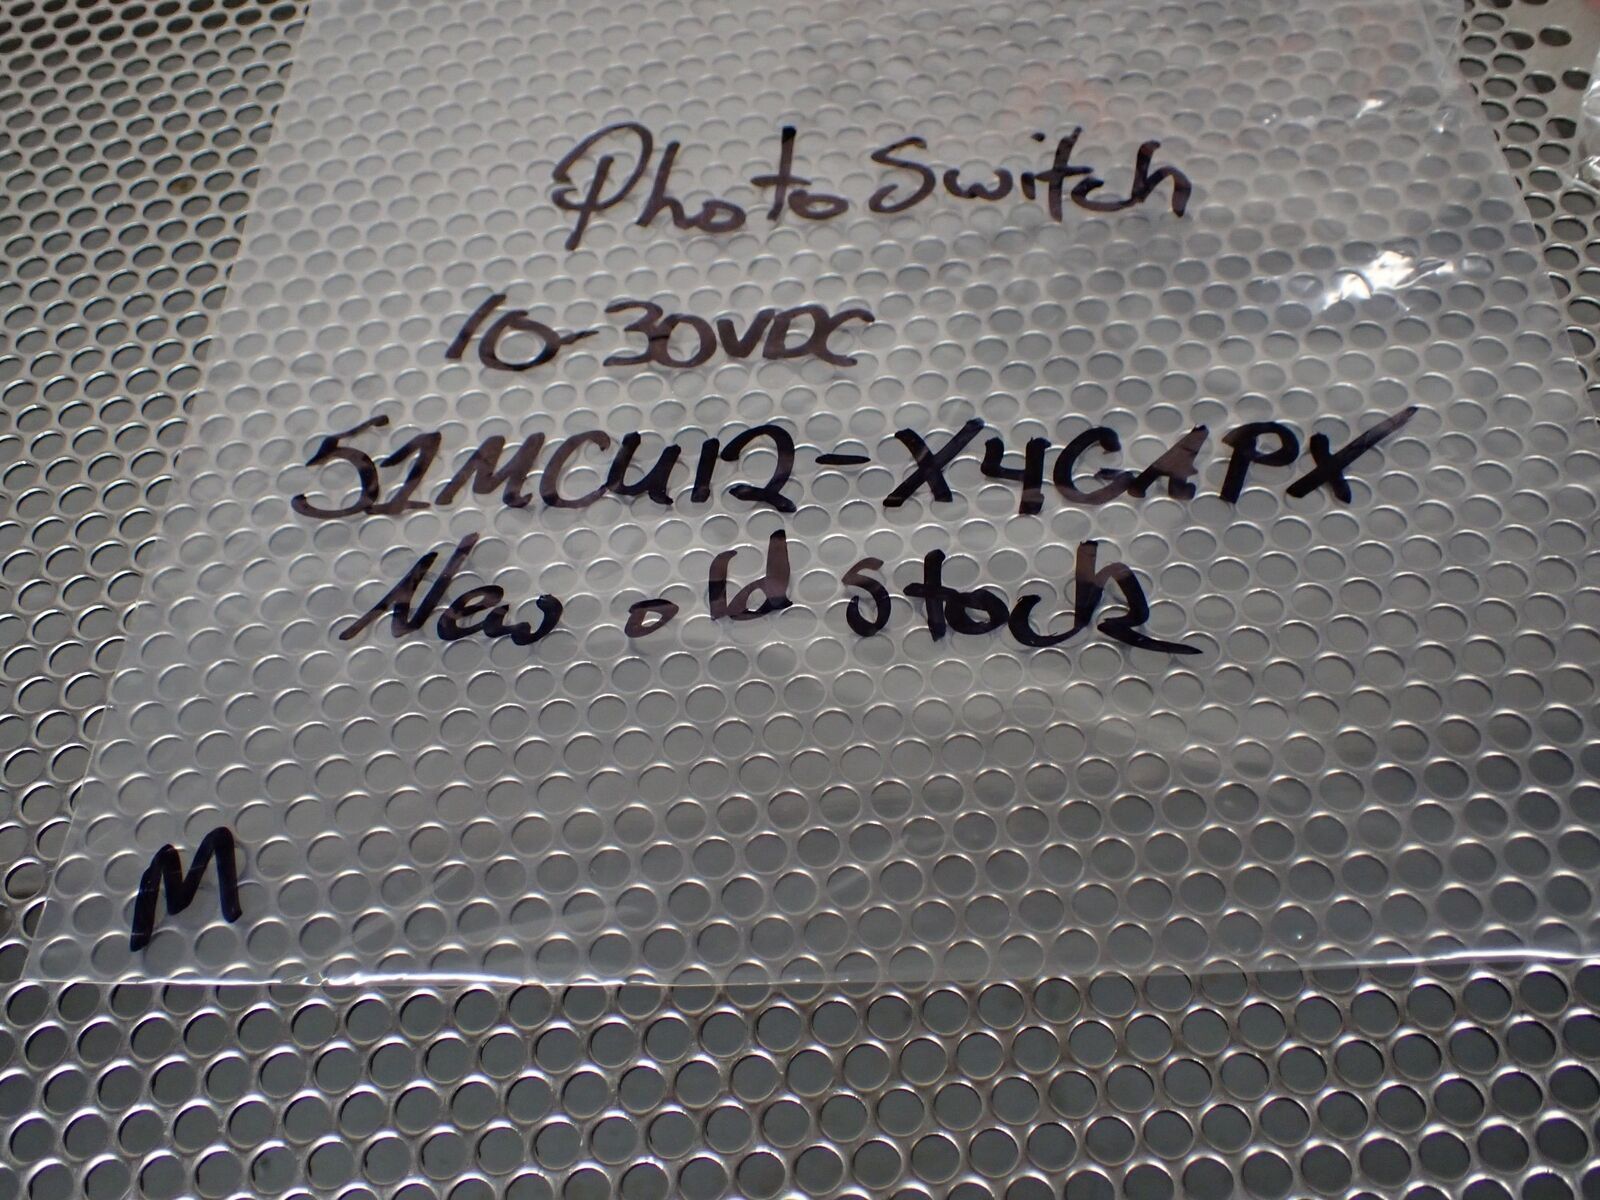 Photo Switch
10-30VDC
51MCU12-X4GAPX
New old stock
M